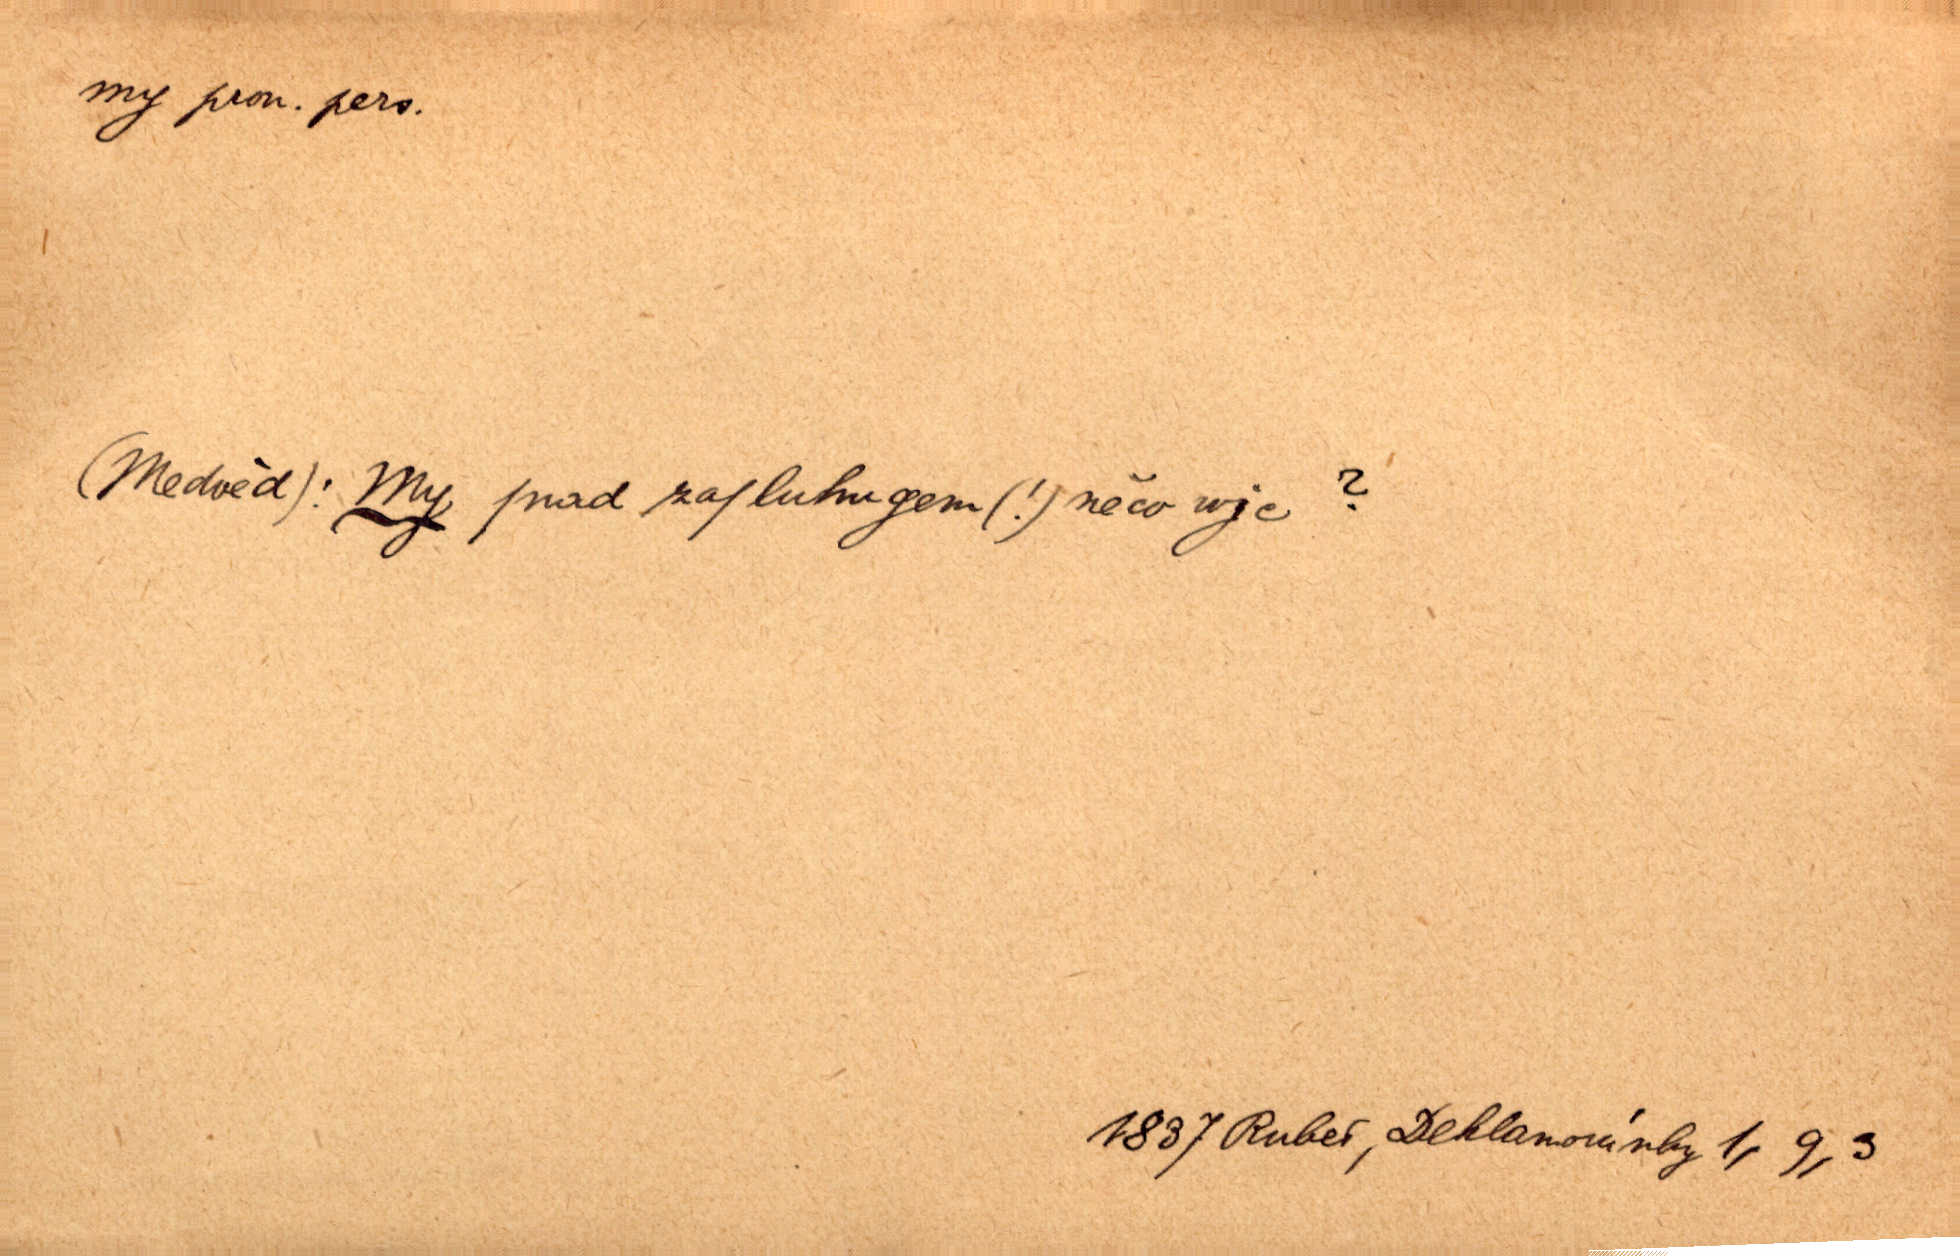 my pron. pers.
(Medvěd): My snad zasluhugem (!) něco wjc ?
1837 Rubeš, Deklamovánky 1, 9, 3